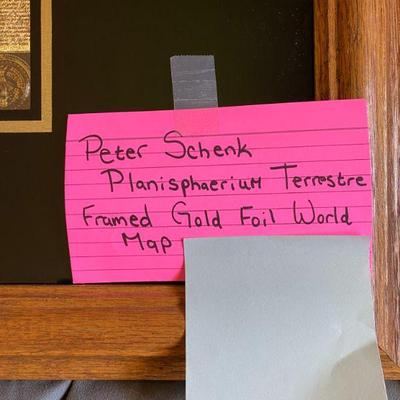 Peter Schenk
Planisphaerium Terrestre
Framed Gold Foil World
Map